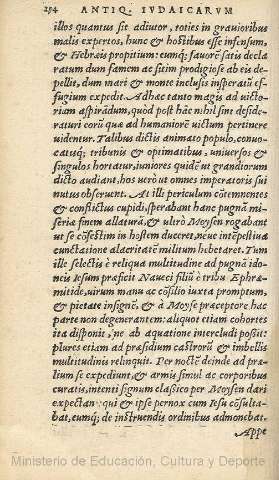 254 ANTIQ. IVDAICARVM
illos quantus sit adiutor, toties in grauioribus
malis expertos, hunc & hostibus esse infensum,
& Hebræis propitium: eumq; fauorē satis decla
ratum dum famem ac sitim prodigiose ab eis de-
pellit, dum mari & monte inclusis insperatū ef-
fugium expedit. Ad hæc tanto magis ad victo-
riam aspirādum, quòd post hâc nihil sint deside-
raturi corū quæ ad humaniorē victum pertinere
videntur. Talibus dictis animato populo, conuo-
catisq; tribunis & optimatibus, vniuersos &
singulos hortatur, iuniores quidē vt grandiorum
dicto audiant, hos verò vt omnes imperatoris sui
nutus obseruent. At illi periculum cōtemnentes
& conflictus cupidi, sperabant hanc pugnā mi-
seriæ finem allaturā, & vltrò Moysen rogabant
vt se cōfestim in hostem duceret, neue intēpestiua
cunctatione alacritatē militum hebetaret. Tum
ille selectis è reliqua multitudine ad pugnā ido-
neis Iesum præficit Naueci filiū è tribu Ephræ-
mitide, virum manu ac cōsilio iuxta promptum,
& pietate insignē, & à Moyse præceptore hac
parte non degenerantem: aliquot etiam cohortes
ita disponit, ne ab aquatione intercludi possit:
plures etiam ad præsidium castrorū & imbellis
multitudinis relinquit. Per noctē deinde ad præ-
lium se expediunt, & armis simul ac corporibus
curatis, intenti signum classico per Moysen dari
expectant: qui & ipse pernox cum Iesu cōsulta-
bat, eumq; de instruendis ordinibus admonebat.
Appe
Ministerio de Educación, Cultura y Deporte